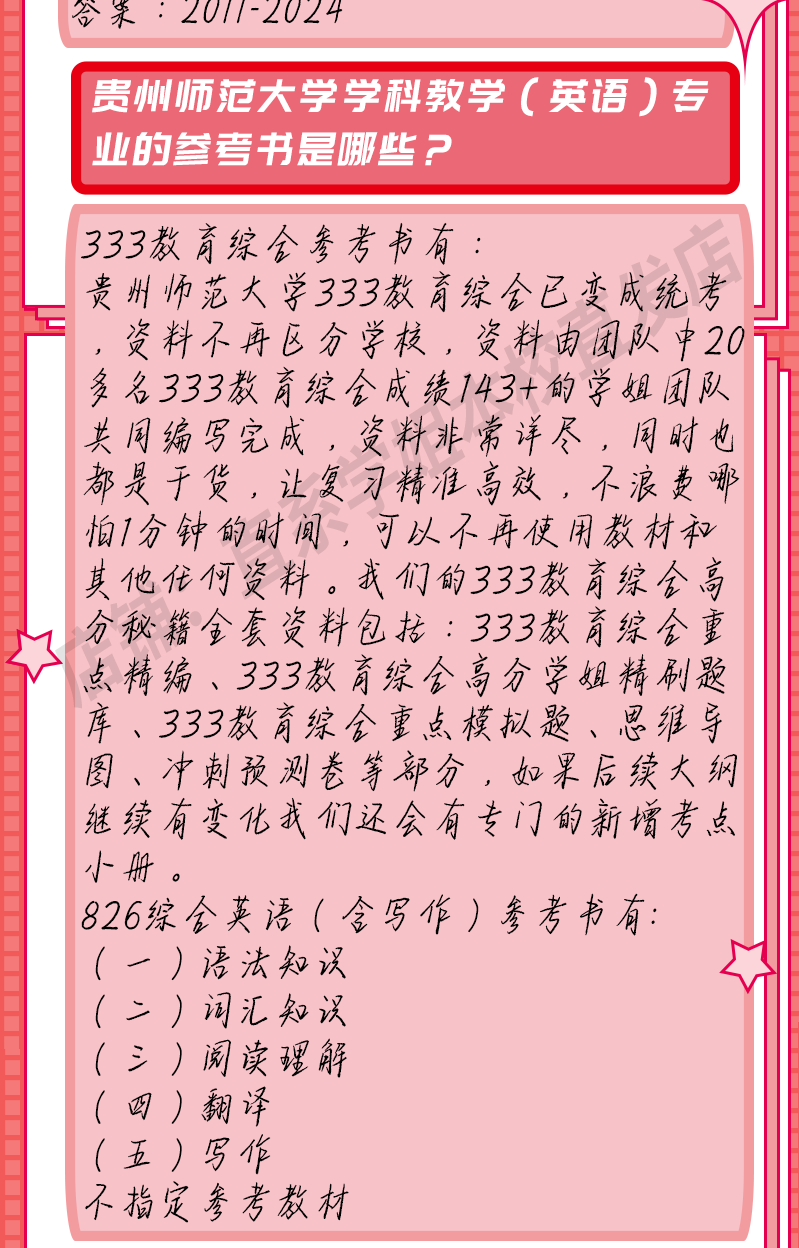 答案：2011-2024
贵州师范大学学科教学（英语）专
业的参考书是哪些？
333教育综合参考书有：
贵州师范大学333教育综合已变成统考
，资料不再区分学校，资料由团队中20
多名333教育综合成绩143+的学姐团队
共同编写完成，资料非常详尽，同时也
都是干货，让复习精准高效，不浪费哪
怕1分钟的时间，可以不再使用教材和
其他任何资料。我们的333教育综合高
分秘籍全套资料包括：333教育综合重
点精编、333教育综合高分学姐精刷题
库、333教育综合重点模拟题、思维导
图、冲刺预测卷等部分，如果后续大纲
继续有变化我们还会有专门的新增考点
小册。
826综合英语（含写作）参考书有:
（一）语法知识
（二）词汇知识
（三）阅读理解
（四）翻译
（五）写作
不指定参考教材
店铺：直系学姐本校直发店